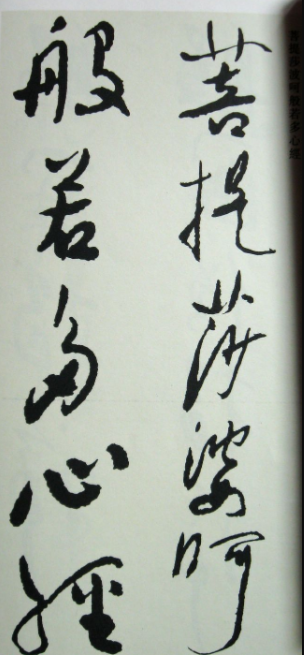 菩提莎婆呵
般若多心經